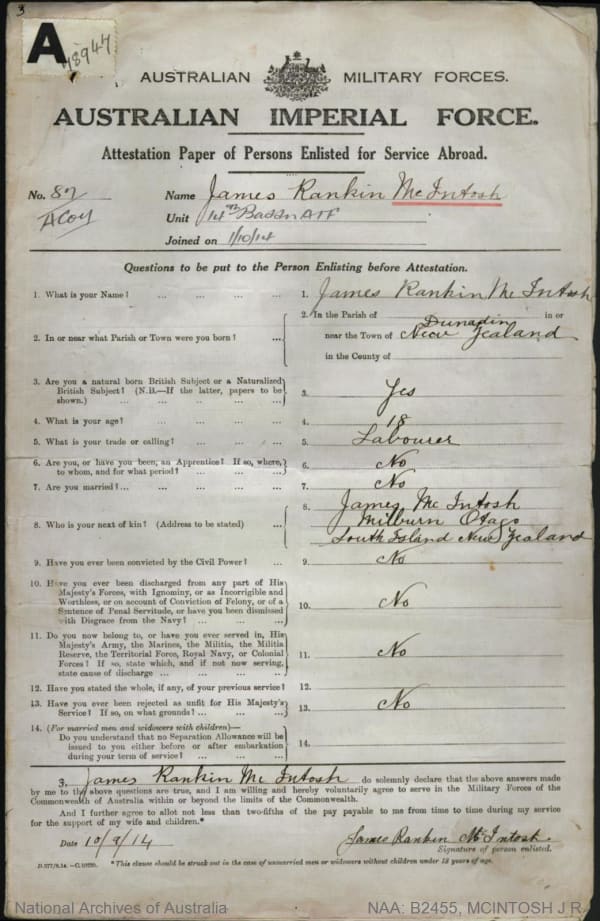 3
A 48947
AUSTRALIAN MILITARY FORCES.
AUSTRALIAN IMPERIAL FORCE.
Attestation Paper of Persons Enlisted for Service Abroad.
No. 87 Name James Rankin McIntosh
A Coy Unit 14th Battn AIF
Joined on 1/10/14
Questions to be put to the Person Enlisting before Attestation.
1. What is your Name? ... ... ... ... 1. James Rankin McIntosh
2. In or near what Parish or Town were you born? ... 2. In the Parish of Dunadin in or
near the Town of New Zealand
in the County of
3. Are you a natural born British Subject or a Naturalized
British Subject? (N.B.—If the latter, papers to be
shown.) ... ... ... ... ... 3. Yes
4. What is your age? ... ... ... ... 4. 18
5. What is your trade or calling? ... ... ... 5. Labourer
6. Are you, or have you been, an Apprentice? If so, where,
to whom, and for what period? ... ... ... 6. No
7. Are you married? ... ... ... ... ... 7. No
8. Who is your next of kin? (Address to be stated) ... 8. James McIntosh
Milburn Otago
South Island New Zealand
9. Have you ever been convicted by the Civil Power? ... 9. No
10. Have you ever been discharged from any part of His
Majesty's Forces, with Ignominy, or as Incorrigible and
Worthless, or on account of Conviction of Felony, or of a
Sentence of Penal Servitude, or have you been dismissed
with Disgrace from the Navy? ... ... ... 10. No
11. Do you now belong to, or have you ever served in, His
Majesty's Army, the Marines, the Militia, the Militia
Reserve, the Territorial Force, Royal Navy, or Colonial
Forces? If so, state which, and if not now serving,
state cause of discharge ... ... ... ... 11. No
12. Have you stated the whole, if any, of your previous service? 12.
13. Have you ever been rejected as unfit for His Majesty's
Service? If so, on what grounds? ... ... ... 13. No
14. (For married men and widowers with children)—
Do you understand that no Separation Allowance will be
issued to you either before or after embarkation
during your term of service? ... ... ... 14.
3. James Rankin McIntosh do solemnly declare that the above answers made
by me to the above questions are true, and I am willing and hereby voluntarily agree to serve in the Military Forces of the
Commonwealth of Australia within or beyond the limits of the Commonwealth.
And I further agree to allot not less than two-fifths of the pay payable to me from time to time during my service
for the support of my wife and children.*
Date 10/9/14 James Rankin McIntosh
Signature of person enlisted.
*This clause should be struck out in the case of unmarried men or widowers without children under 18 years of age.
National Archives of Australia NAA: B2455, MCINTOSH J R